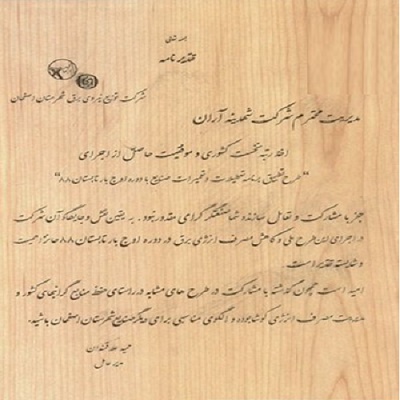 بسمه تعالی
تقدیر نامه
شرکت توزیع نیروی برق شهرستان اصفهان
مدیریت محترم شرکت شهدینه آران
اخذ رتبه نخست کشوری و موفقیت حاصل از اجرای
"طرح تطبیق برنامه تعطیلات و تعمیرات صنایع با دوره اوج بار تابستان ۸۸"
جز با مشارکت و تعامل سازنده شما صنعتگر گرامی مقدور نبود. به یقین نقش و جایگاه آن شرکت
در اجرای این طرح ملی و کاهش مصرف انرژی برق در دوره اوج بار تابستان ۸۸ حائز اهمیت
و شایسته تقدیر است.
امید است همچون گذشته با مشارکت در طرح های مشابه در راستای حفظ منابع گرانبهای کشور و
مدیریت مصرف انرژی کوشا بوده و الگوی مناسبی برای دیگر صنایع شهرستان اصفهان باشید.
مدیر عامل